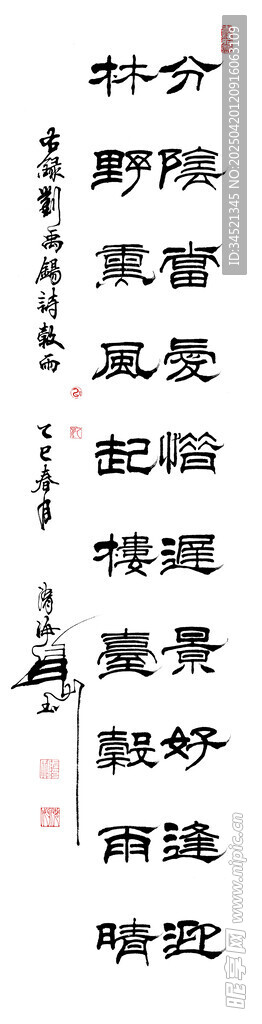 分陰當愛惜遲景好逢迎
林野熏風起樓臺穀雨晴
右錄劉禹錫詩穀雨
乙巳春月
ID:34521345 NO:20250420120916063109
昵享网 www.nipic.cn